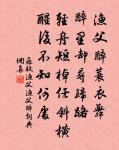 漁父醉蓑衣舞
醉里卻尋歸路
輕舟短棹任斜橫
醒後不知何處
蘇軾漁父漁父醉詞典